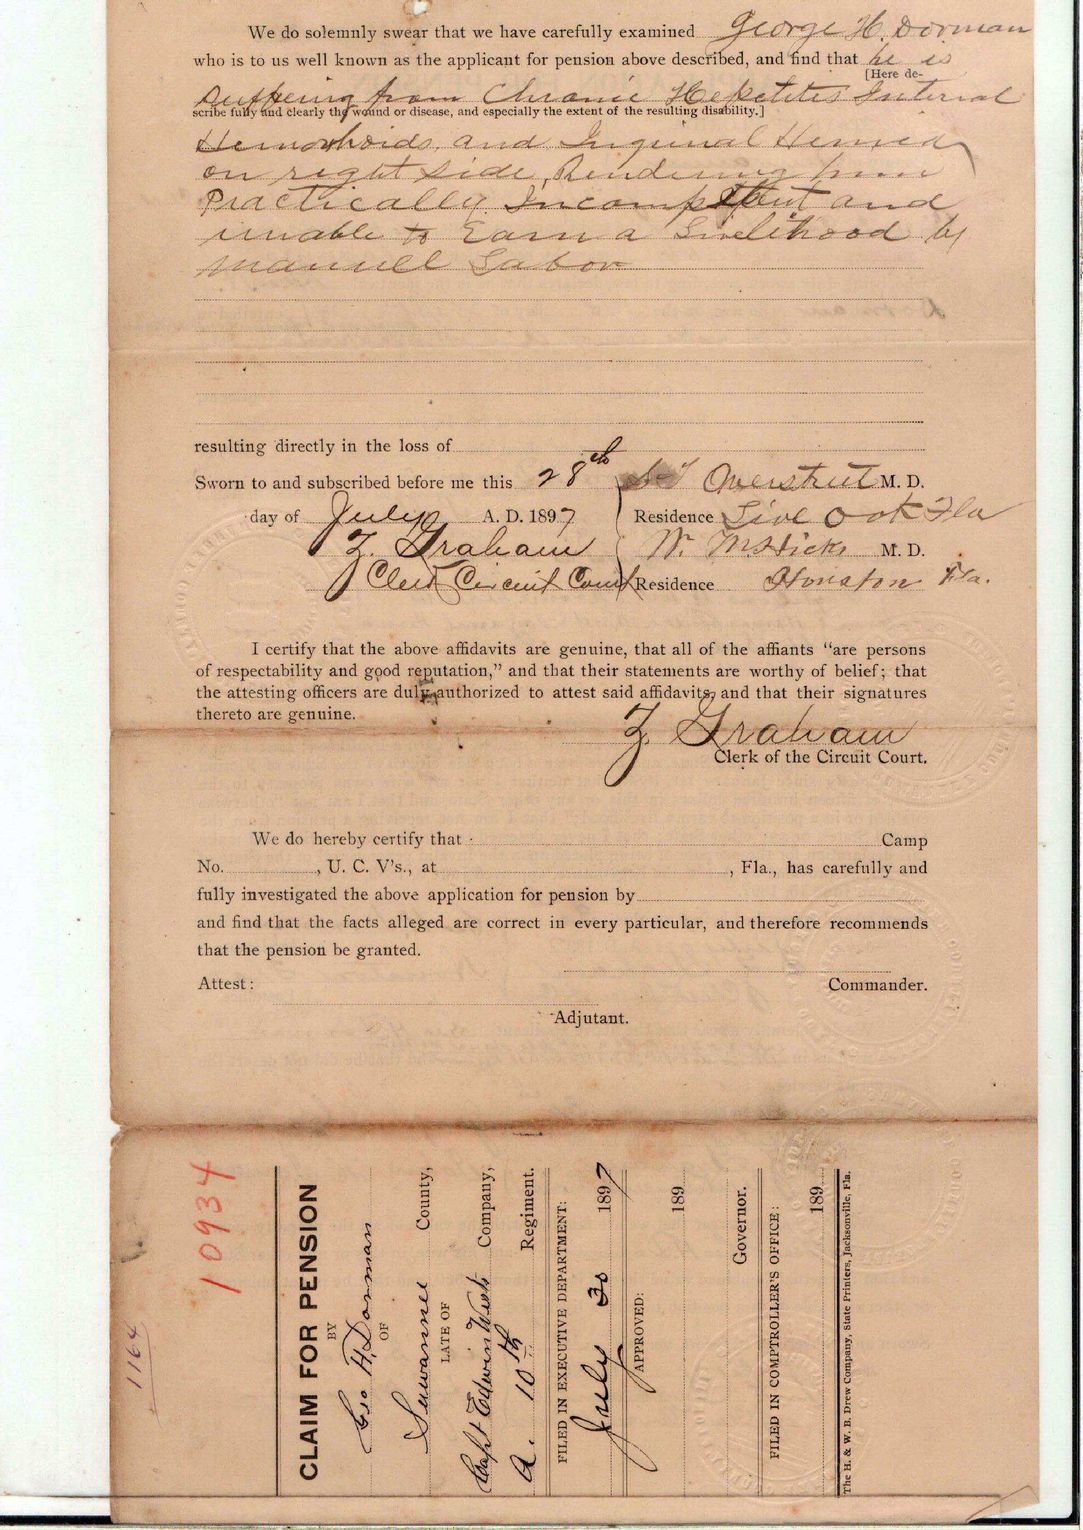 We do solemnly swear that we have carefully examined George H. Dorman
who is to us well known as the applicant for pension above described, and find that he is
[Here de-
suffering from Chronic Hepetites Internal
scribe fully and clearly the wound or disease, and especially the extent of the resulting disability.]
Hemorrhoids, and Inguinal Hernia
on right side, Rendering him
Practically Incompetent and
unable to Earn a Livelihood by
manuell Labor
resulting directly in the loss of
Sworn to and subscribed before me this 28th Overstreet M. D.
day of July A. D. 1897 Residence Live Oak Fla
Z. Graham W. McHicks M. D.
Clerk Circuit Court Residence Houston Fla.
I certify that the above affidavits are genuine, that all of the affiants “are persons
of respectability and good reputation,” and that their statements are worthy of belief; that
the attesting officers are duly authorized to attest said affidavits, and that their signatures
thereto are genuine.
Z. Graham
Clerk of the Circuit Court.
We do hereby certify that Camp
No. , U. C. V's., at , Fla., has carefully and
fully investigated the above application for pension by
and find that the facts alleged are correct in every particular, and therefore recommends
that the pension be granted.
Attest: Commander.
Adjutant.
1164
10934
CLAIM FOR PENSION
BY
Geo H. Dorman
OF
Suwannee County,
LATE OF
Capt Edwin West Company,
A. 10th Regiment.
FILED IN EXECUTIVE DEPARTMENT:
July 30 1897
APPROVED:
189
Governor.
FILED IN COMPTROLLER'S OFFICE:
189
The H. & W. B. Drew Company, State Printers, Jacksonville, Fla.